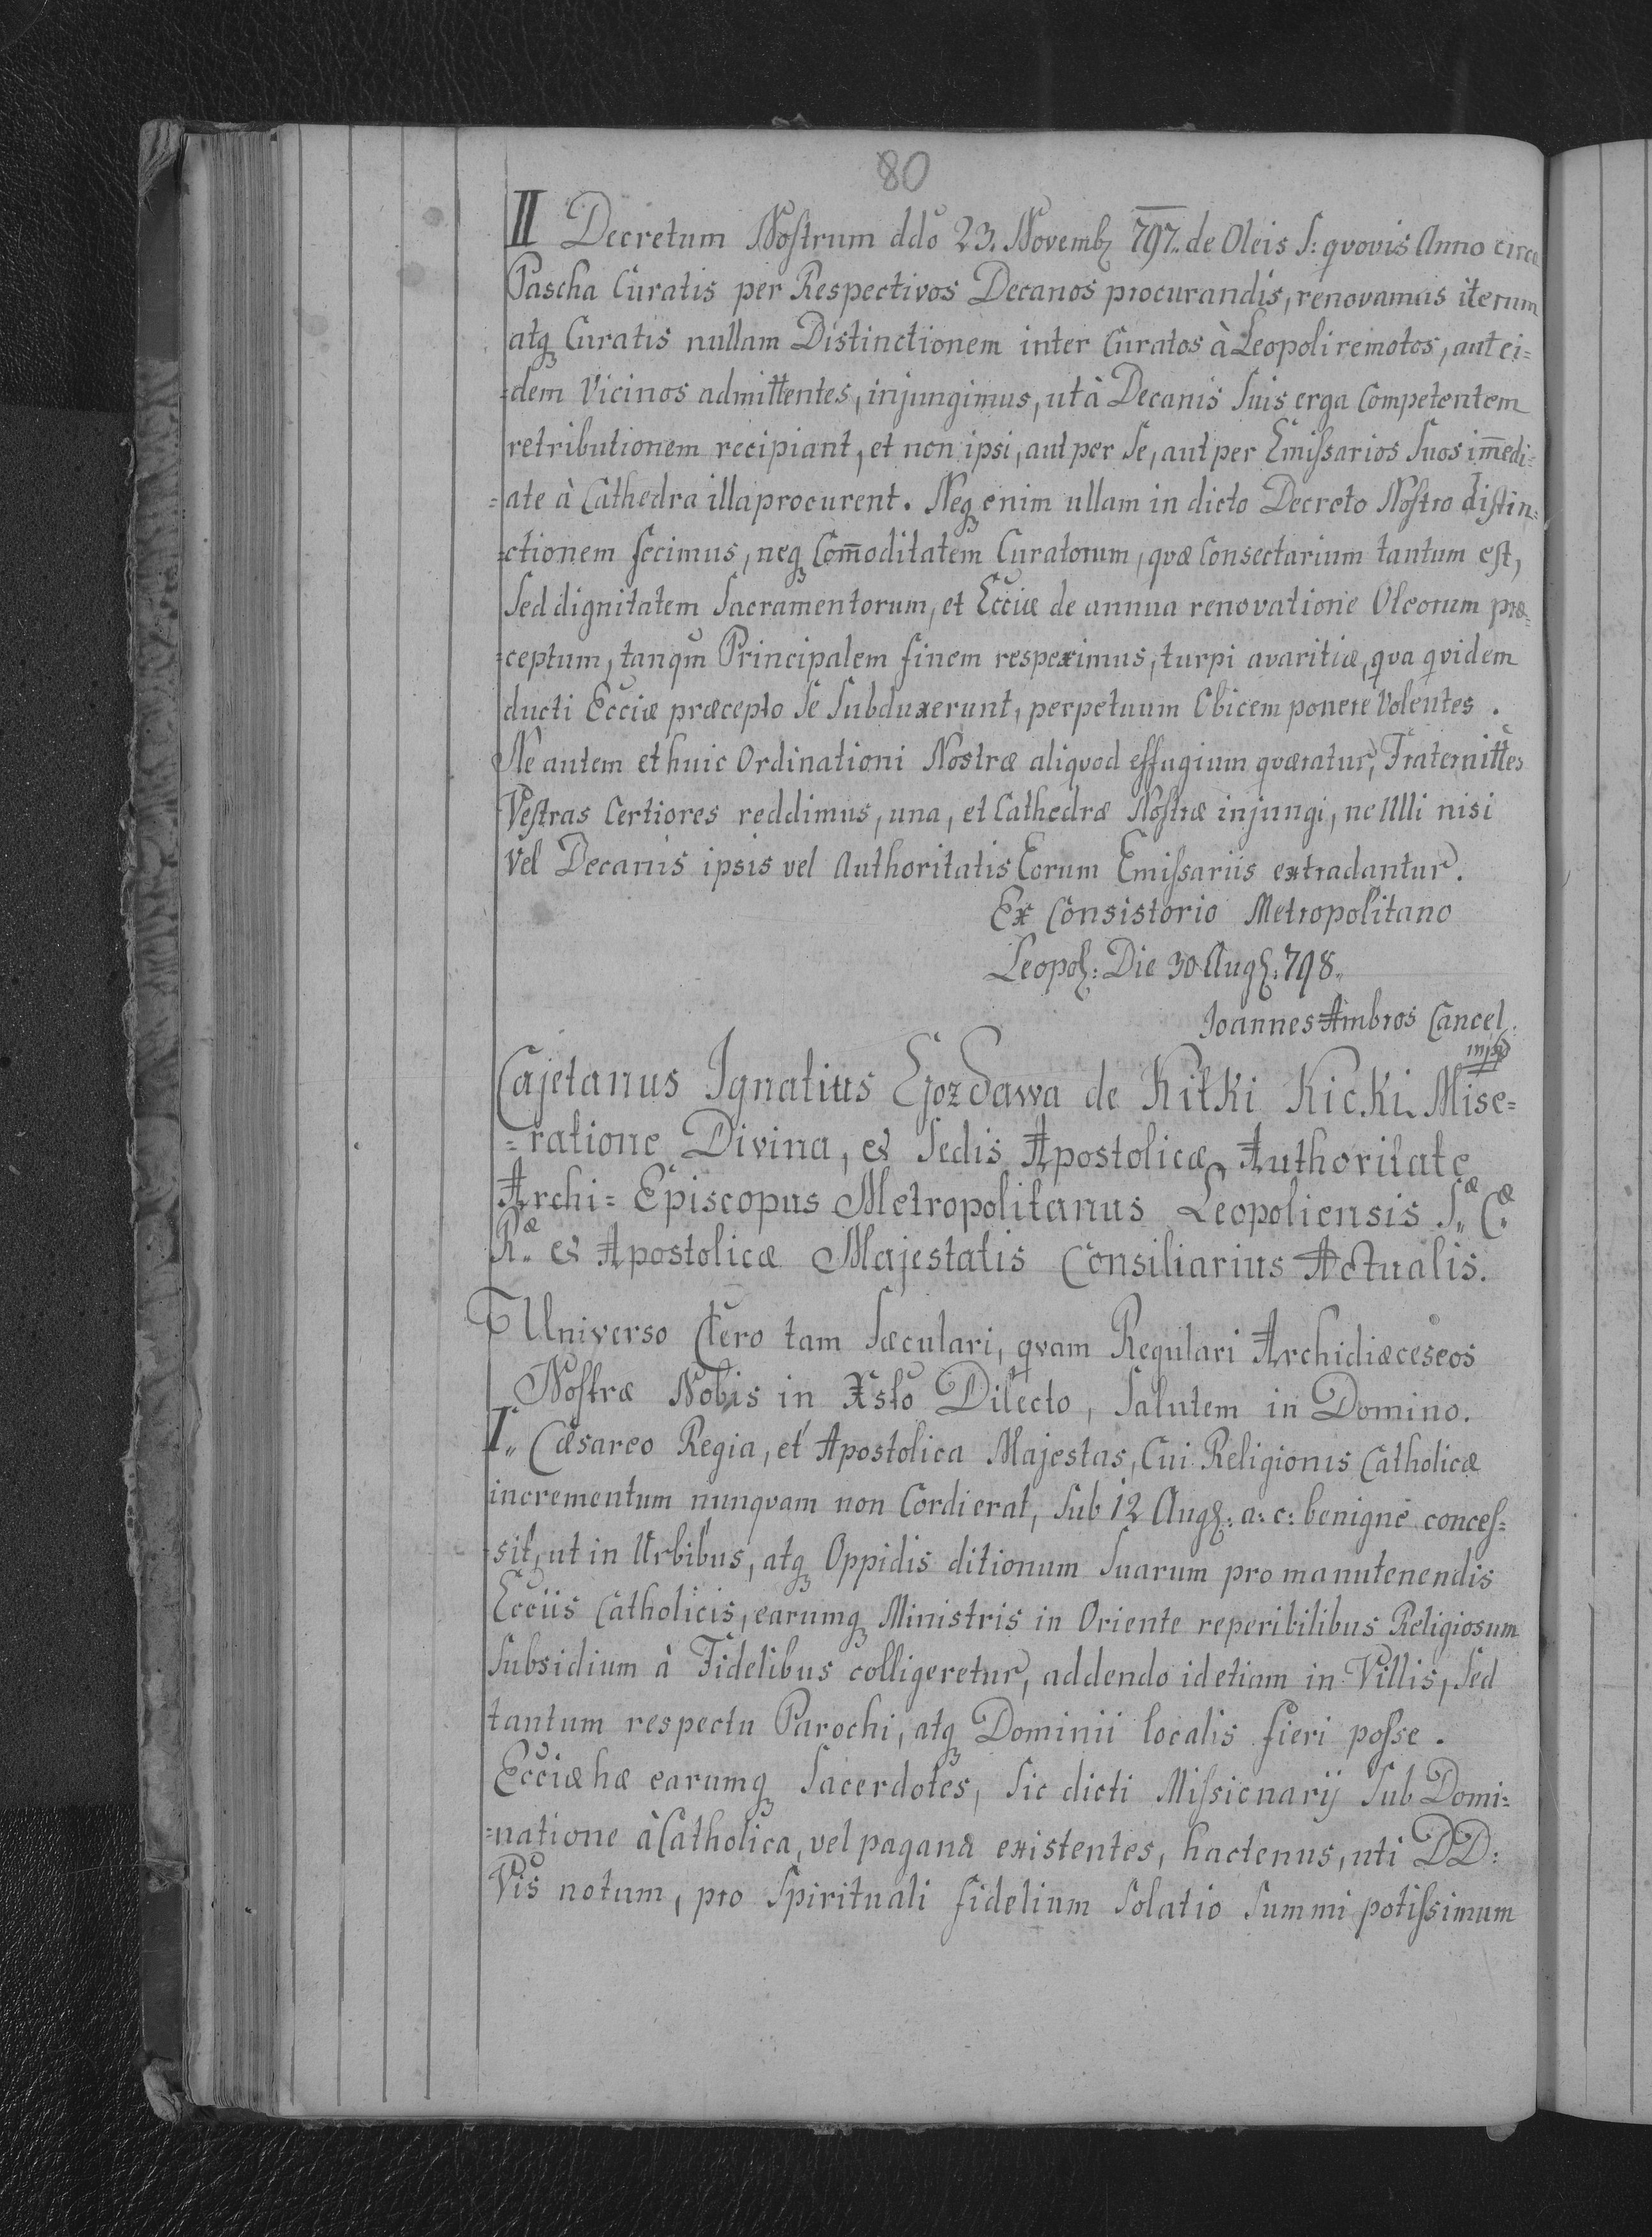 80
II Decretum Nostrum ddo 23. Novemb 797. de Oleis S: qvovis Anno circa
Pascha Curatis per Respectivos Decanos procurandis, renovamus iterum
atq Curatis nullam Distinctionem inter Curatos à Leopoli remotos, aut ei=
=dem Vicinos admittentes, injungimus, ut à Decanis Suis erga Competentem
retributionem recipiant, et non ipsi, aut per Se, aut per Emissarios Suos im̅edi=
=ate à Cathedra illa procurent. Neq enim ullam in dicto Decreto Nostro distin=
=ctionem fecimus, neq Com̅oditatem Curatorum, qvæ Consectarium tantum est,
Sed dignitatem Sacramentorum, et Ecciæ de annua renovatione Oleorum præ=
=ceptum, tanqm Principalem finem respeximus, turpi avaritiæ, qva qvidem
ducti Ecciæ præcepto Se Subduxerunt, perpetuum Obicem ponere Volentes.
Ne autem et huic Ordinationi Nostræ aliqvod effugium qværatur, Fraternittes
Vestras Certiores reddimus, una, et Cathedræ Nostræ injungi, ne Ulli nisi
Vel Decanis ipsis vel Authoritatis Eorum Emissariis extradantur.
Ex Consistorio Metropolitano
Leopol: Die 30 Aug: 798.
Joannes Ambros Cancel.
mp
Cajetanus Ignatius Gozdawa de Kitki Kicki Mise=
=ratione Divina, et Sedis Apostolicæ Authoritate
Archi=Episcopus Metropolitanus Leopoliensis S.æ C.æ
R.æ et Apostolicæ Majestatis Consiliarius Actualis.
Universo Clero tam Sæculari, qvam Regulari Archidiæceseos
Nostræ Nobis in Xsto Dilecto, Salutem in Domino.
I.. Cæsareo Regia, et Apostolica Majestas, Cui Religionis Catholicæ
incrementum nunqvam non Cordi erat, Sub 12 Aug: a: c: benigne conces=
=sit, ut in Urbibus, atq Oppidis ditionum Suarum pro manutenendis
Ecciis Catholicis, earumq Ministris in Oriente reperibilibus Religiosum
Subsidium à Fidelibus colligeretur, addendo id etiam in Villis, Sed
tantum respectu Parochi, atq Dominii localis fieri posse.
Ecciæ hæ earumq Sacerdotes, Sic dicti Missionarij Sub Domi=
=natione à Catholica, vel pagana existentes, hactenus, uti DD:
Vis notum, pro Spirituali fidelium Solatio Summi potissimum